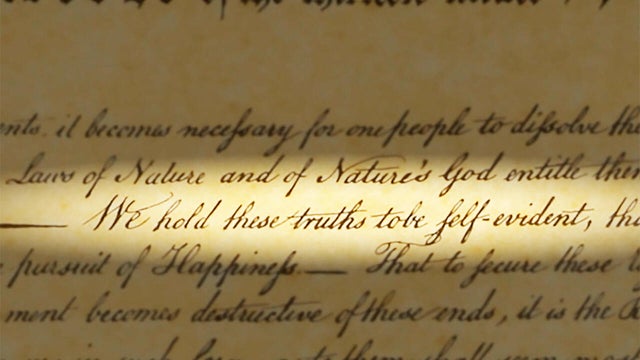 of the thirteen united
ents, it becomes neceſsary for one people to diſsolve the
Laws of Nature and of Nature's God entitle them
— We hold these truths to be ſelf-evident, tha
pursuit of Happineſs. — That to ſecure these
ment becomes destructive of these ends, it is the R